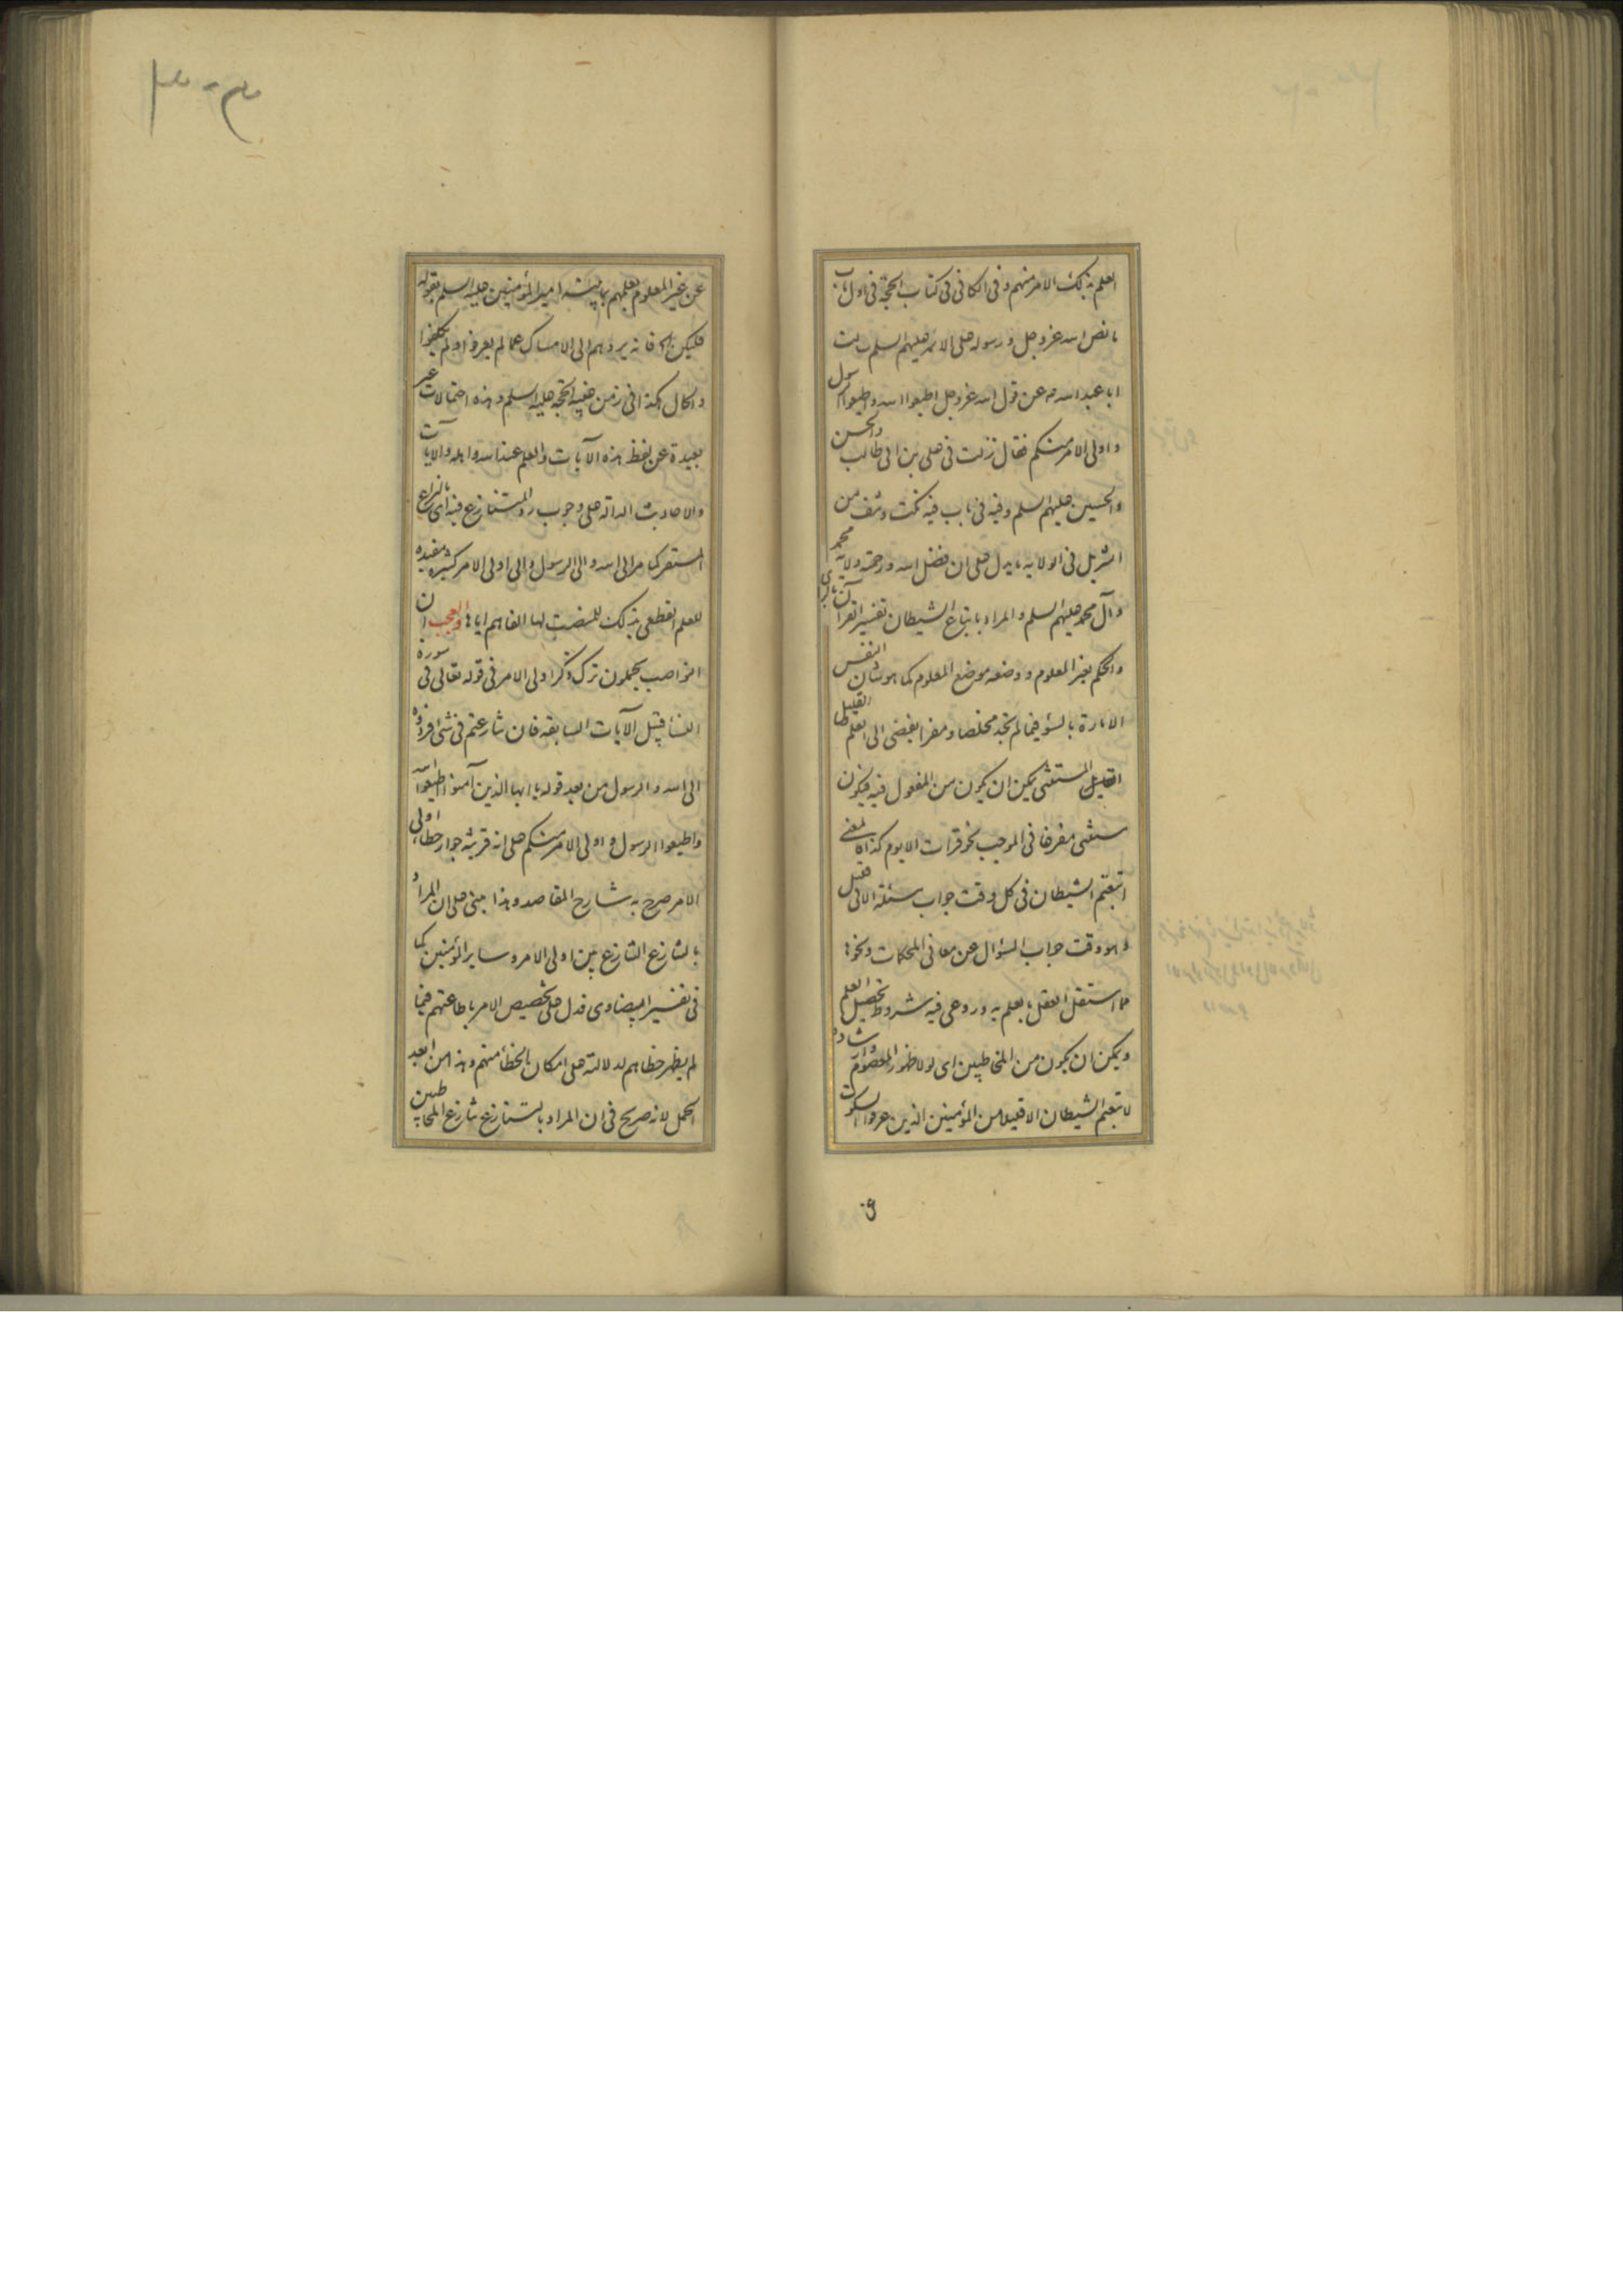 العلم بذلك الامر منهم و فى الكافى فى كتاب الحجة فى اول باب
ما نص الله عز و جل و رسوله على الائمة عليهم السلم سالت
ابا عبد الله ع عن قول الله عز و جل اطيعوا الله و اطيعوا الرسول
و اولى الامر منكم فقال نزلت فى على بن ابى طالب و الحسن
و الحسين عليهم السلم و فيه فى باب فيه نكت و نتف من
التنزيل فى الولاية ما يدل على ان فضل الله و رحمته ولاية محمد
و آل محمد عليهم السلم و المراد باتباع الشيطان تفسير القرآن بالراى
و الحكم بغير المعلوم و وضعه موضع المعلوم كما هو شان النفس
الامارة بالسؤ فيما لم تجد مخلصا و مفرا يفضى الى العلم
القليل المستثنى يمكن ان يكون من المفعول فيه فيكون
مستثنى مفرغا فى الموجب نحو قرات الا يوم كذا المعنى
اتبعتم الشيطان فى كل وقت جواب مسئلة الا فى قليل
و هو وقت جواب السؤال عن معانى المحكمات و نحوها
مما استقل العقل بالعلم به و روعى فيه شروط تحصيل العلم
و يمكن ان يكون من المخاطبين اى لو لا ظهور المعصوم و ارشاده
لاتبعتم الشيطان الا قليلا من المؤمنين الذين عرفوا السكوت
عن غير المعلوم بعلمهم امير المؤمنين عليه السلم بقوله
و الحال هكذا فى زمن غيبة الحجة عليه السلم و هذه احتمالات غير
بعيدة عن لفظ هذه الآيات و العلم عند الله و اهله و الآيات
و الاحاديث الدالة على وجوب رد المتنازع فيه اى بالنزاع
المستقر كما مر الى الله و الى الرسول و الى اولى الامر كثيرة مفيدة
للعلم القطعى بذلك للمنصت لها الفاهم اياها و العجب ان
النواصب يجعلون ترك ذكر اولى الامر فى قوله تعالى فى سورة
النسا قبل الآيات السابقة فان تنازعتم فى شئ فردوه
الى الله و الرسول من بعد قوله يا ايها الذين آمنوا اطيعوا الله
و اطيعوا الرسول و اولى الامر منكم على انه قرينة جواز خطا اولى
الامر صرح به شارح المقاصد و هذا مبنى على ان المراد
بالتنازع التنازع بين اولى الامر و ساير المؤمنين كما
فى تفسير البيضاوى فدل على تخصيص الامر بطاعتهم فيما
لم يظهر خطاهم لدلالته على امكان الخطأ منهم و هذا من ابعد
المحمل لانه صريح فى ان المراد بالتنازع تنازع المخاطبين